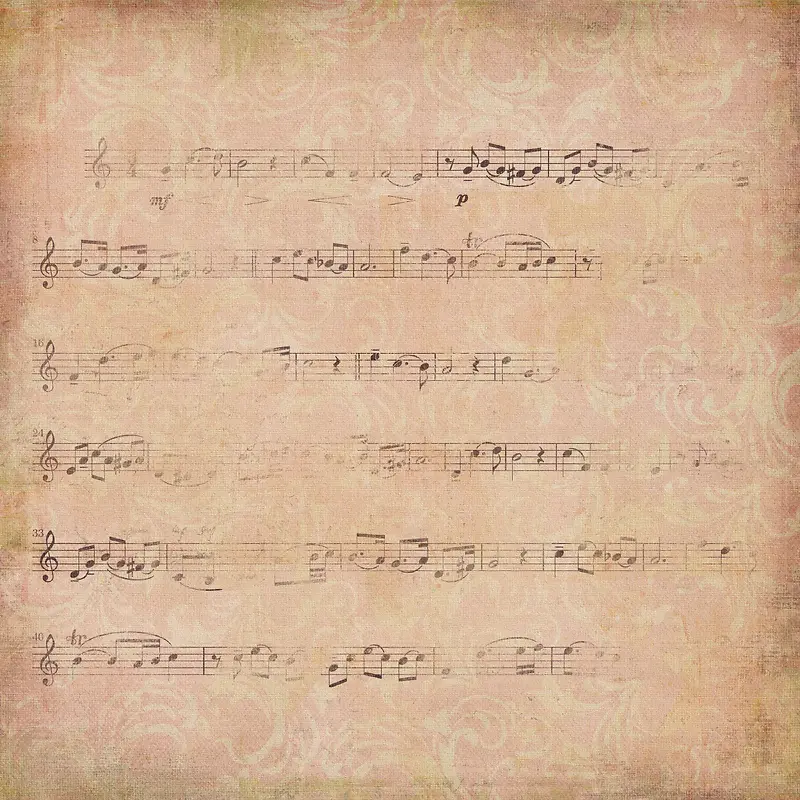 mf p
8 tr
16
24
33
40 tr